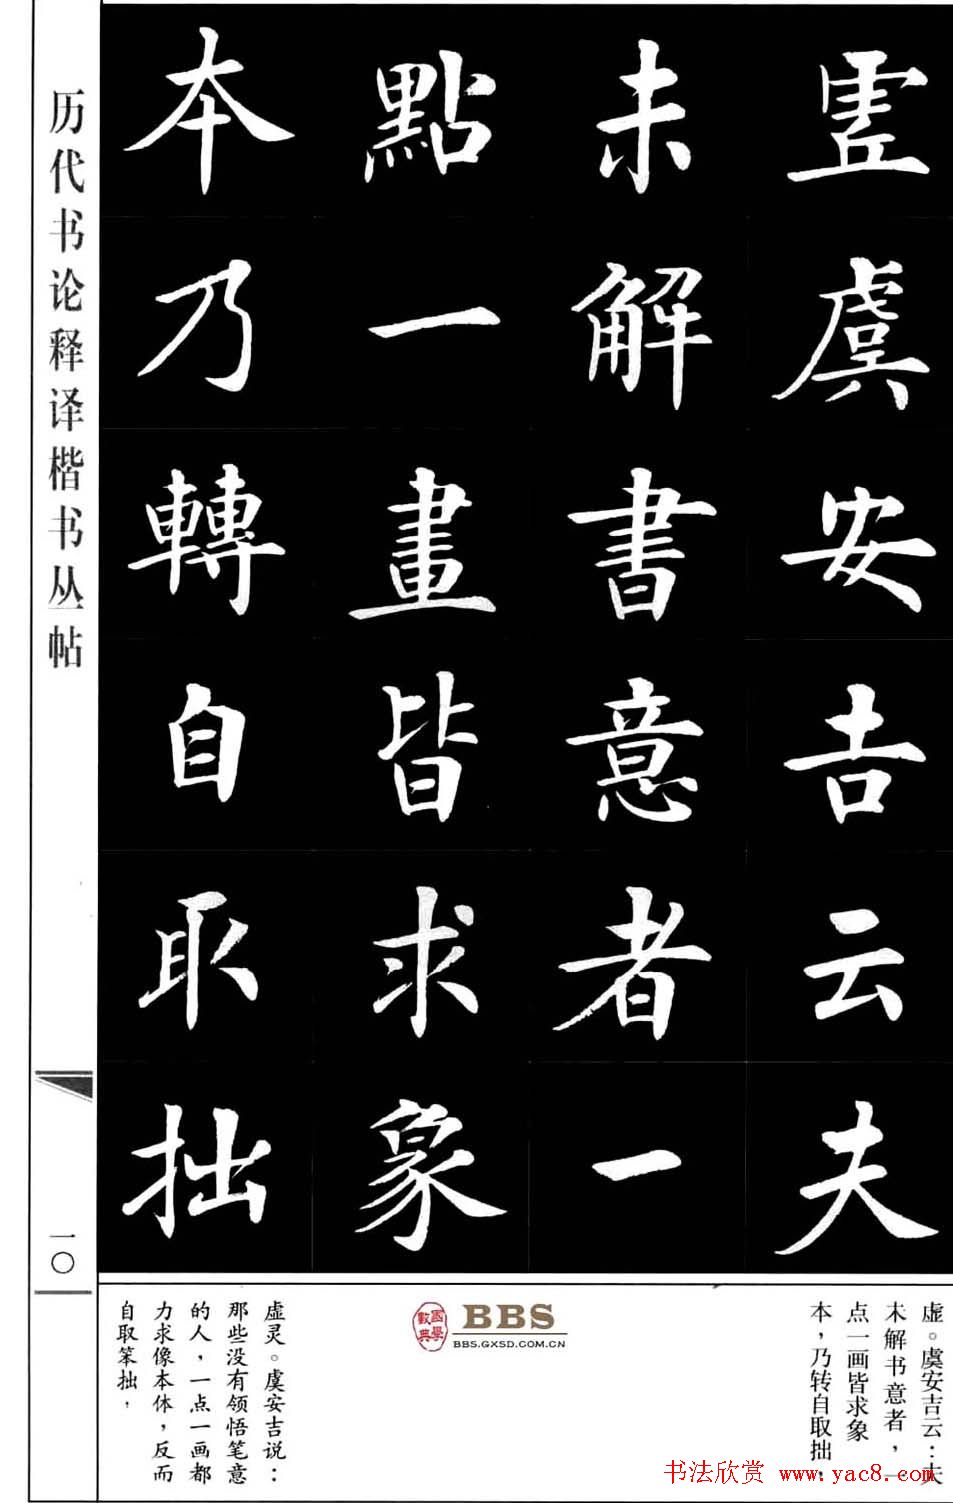 虚虞安吉云夫
未解書意者一
點一畫皆求象
本乃轉自取拙
历代书论释译楷书丛帖
一〇
虚。虞安吉云：夫
未解书意者，一
点一画皆求象
本，乃转自取拙，
國學數典
BBS
BBS.GXSD.COM.CN
虚灵。虞安吉说：
那些没有领悟笔意
的人，一点一画都
力求像本体，反而
自取笨拙，
书法欣赏 www.yac8.com